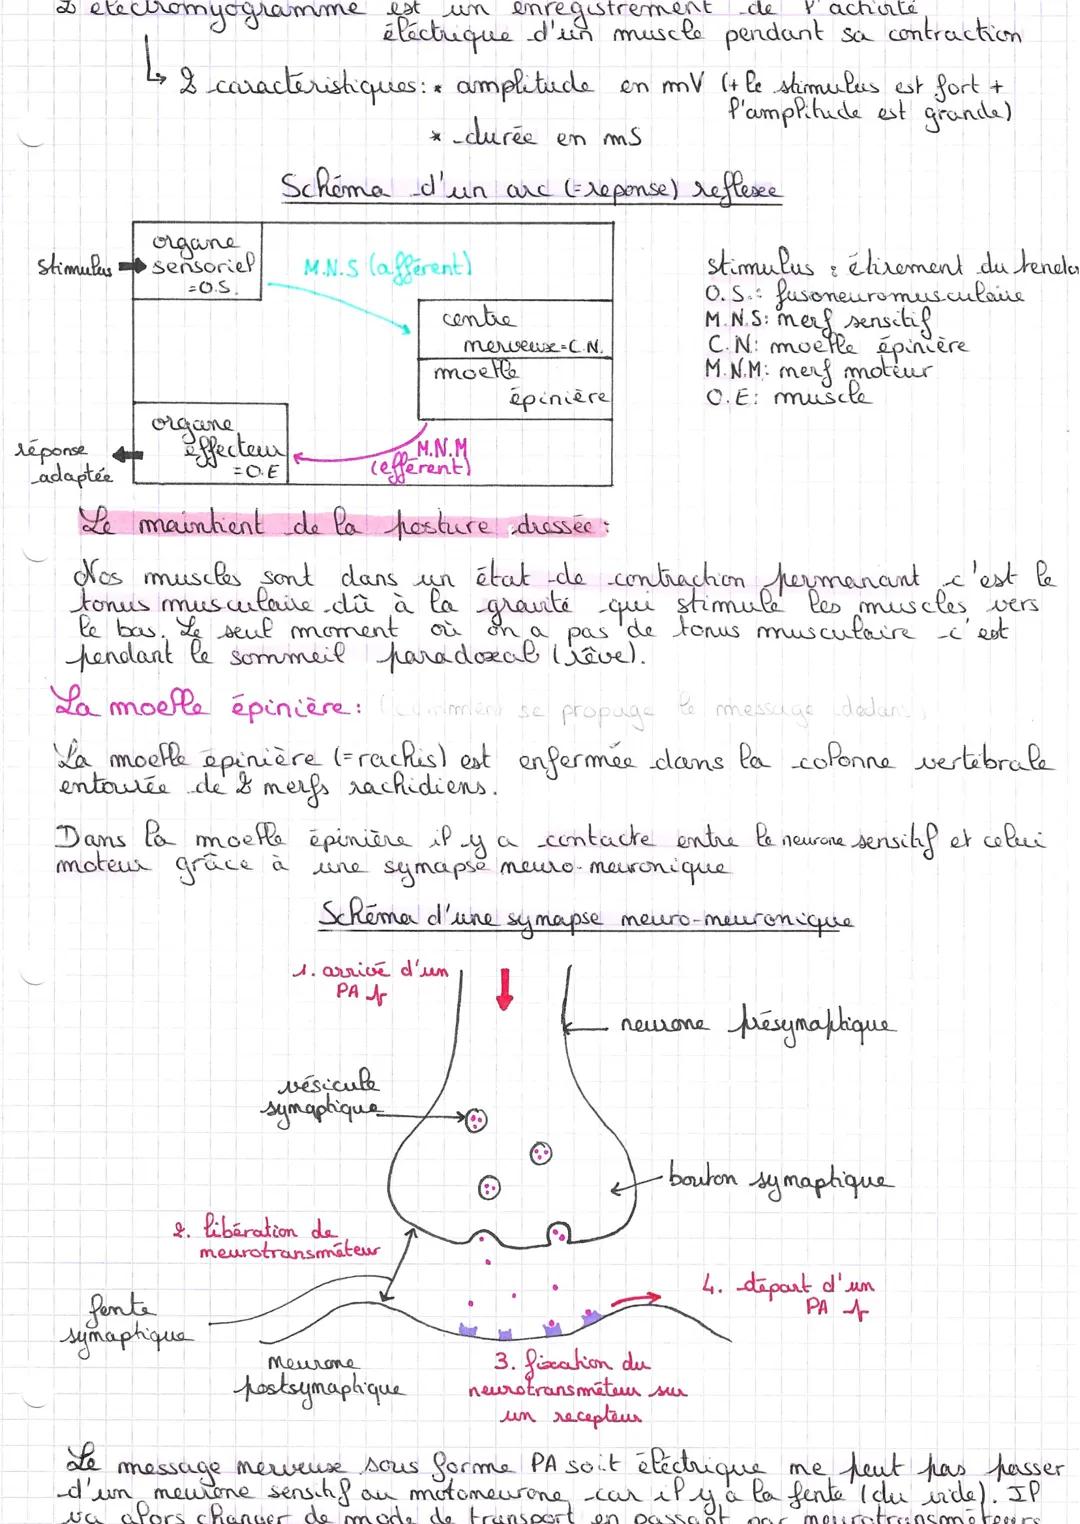 électromyogramme est un enregistrement de l'activité
éléctrique d'un muscle pendant sa contraction
2 caractéristiques: * amplitude en mV (+ le stimulus est fort +
l'amplitude est grande)
* durée en mS
Schéma d'un arc (=reponse) reflexe
organe
sensoriel
=O.S.
stimulus
M.N.S (afférent)
centre
nerveux=C.N.
moelle
épinière
organe
effecteur
=O.E
réponse
adaptée
M.N.M
(efférent)
stimulus : étirement du tendo
O.S.: fusoneuromusculaire
M.N.S: nerf sensitif
C.N: moelle épinière
M.N.M: nerf moteur
O.E: muscle
Le maintient de la posture dressée :
Nos muscles sont dans un état de contraction permanant c'est le
tonus musculaire dû à la gravité qui stimule les muscles vers
le bas. Le seul moment où on a pas de tonus musculaire c'est
pendant le sommeil paradoxal (rêve).
La moelle épinière: (comment se propage le message dedans)
La moelle épinière (=rachis) est enfermée dans la colonne vertébrale
entourée de 2 nerfs rachidiens.
Dans la moelle épinière il y a contacte entre le neurone sensitif et celui
moteur grâce à une synapse neuro-neuronique
Schéma d'une synapse neuro-neuronique
1. arrivé d'un
PA
neurone présynaptique
vésicule
synaptique
bouton synaptique
2. libération de
neurotransméteur
4. départ d'un
PA
fente
synaptique
neurone
postsynaptique
3. fixation du
neurotransméteur sur
un recepteur
Le message nerveux sous forme PA soit éléctrique ne peut pas passer
d'un neurone sensitif au motoneurone car il y a la fente (du vide). Il
va alors changer de mode de transport en passant par neurotransméteurs